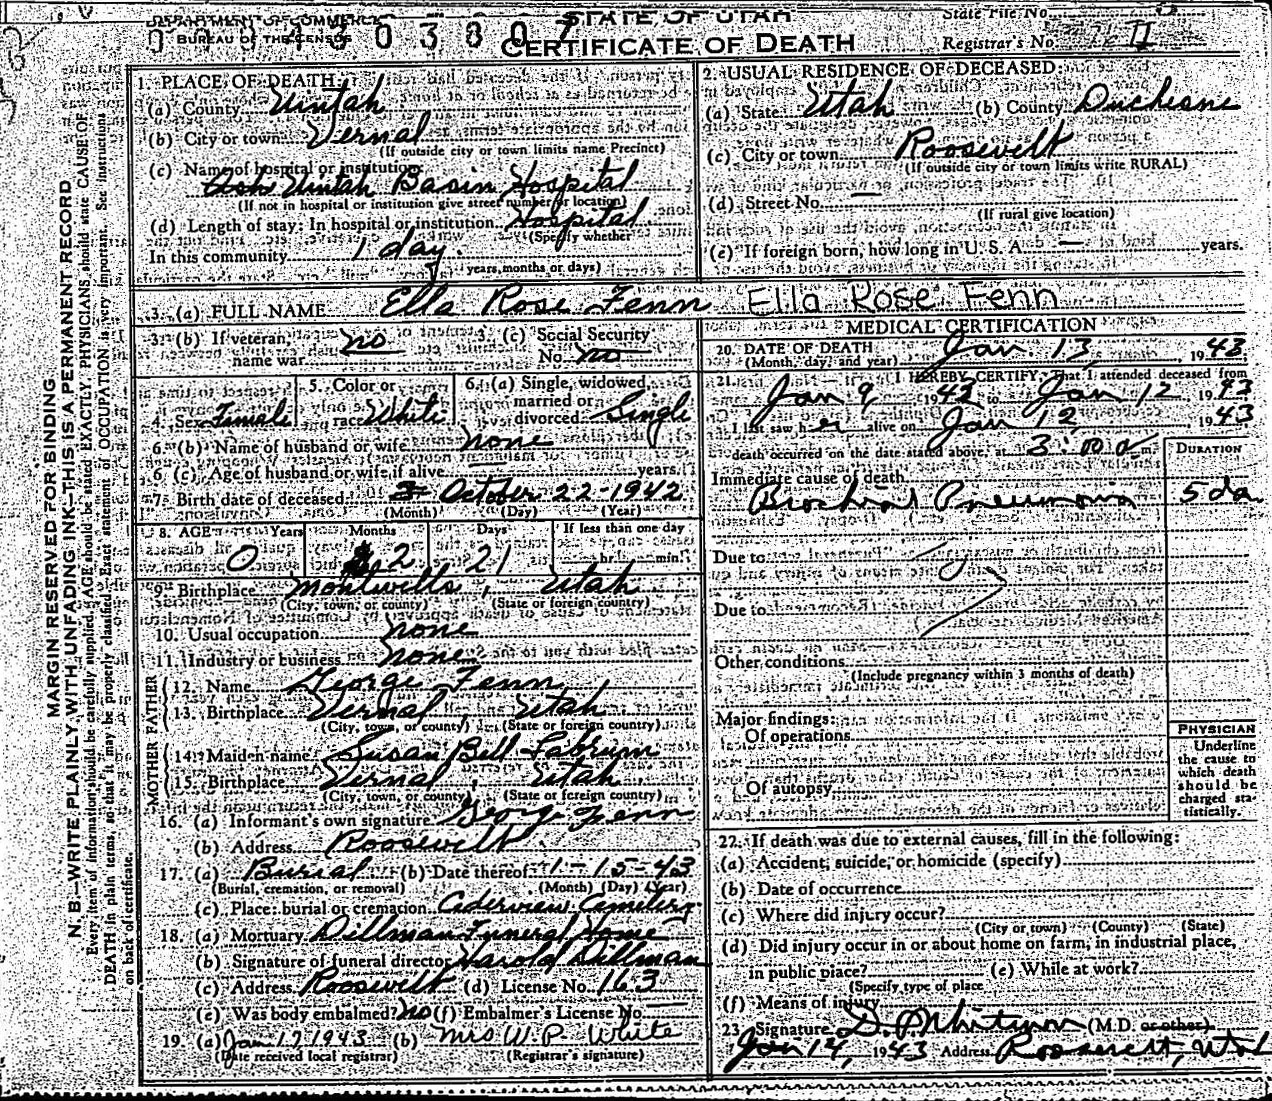 DEPARTMENT OF COMMERCE
BUREAU OF THE CENSUS
STATE OF UTAH
CERTIFICATE OF DEATH
State File No.
Registrar's No.
MARGIN RESERVED FOR BINDING
N. B.—WRITE PLAINLY, WITH UNFADING INK—THIS IS A PERMANENT RECORD
Every item of information should be carefully supplied. AGE should be stated EXACTLY. PHYSICIANS should state CAUSE OF
DEATH in plain terms, so that it may be properly classified. Exact statement of OCCUPATION is very important. See instructions
on back of certificate.
1. PLACE OF DEATH:
(a) County Uintah
(b) City or town Vernal
(If outside city or town limits name Precinct)
(c) Name of hospital or institution:
Uintah Basin Hospital
(If not in hospital or institution give street number or location)
(d) Length of stay: In hospital or institution Hospital
(Specify whether
In this community 1 day.
years, months or days)
2. USUAL RESIDENCE OF DECEASED:
(a) State Utah (b) County Duchesne
(c) City or town Roosevelt
(If outside city or town limits write RURAL)
(d) Street No. —
(If rural give location)
(e) If foreign born, how long in U. S. A. — years.
3. (a) FULL NAME Ella Rose Fenn Ella Rose Fenn
3. (b) If veteran, name war no
3. (c) Social Security No. no
4. Sex Female
5. Color or race White
6. (a) Single, widowed, married or divorced Single
6. (b) Name of husband or wife none
6. (c) Age of husband or wife if alive — years.
7. Birth date of deceased October 22-1942
(Month) (Day) (Year)
8. AGE Years Months Days If less than one day
0 2 21 hr. min.
9. Birthplace Montwells, Utah
(City, town, or county) (State or foreign country)
10. Usual occupation none
11. Industry or business none
FATHER
12. Name George Fenn
13. Birthplace Vernal, Utah
(City, town, or county) (State or foreign country)
MOTHER
14. Maiden name Susan Bell Labrum
15. Birthplace Vernal, Utah
(City, town, or county) (State or foreign country)
16. (a) Informant's own signature George Fenn
(b) Address Roosevelt
17. (a) Burial (b) Date thereof 1-15-43
(Burial, cremation, or removal) (Month) (Day) (Year)
(c) Place: burial or cremation Cederview Cemetery
18. (a) Mortuary Dillman Funeral Home
(b) Signature of funeral director Harold Dillman
(c) Address Roosevelt (d) License No. 163
(e) Was body embalmed? no (f) Embalmer's License No. —
19. (a) Jan 17 1943 (b) Mrs W. P. White
(Date received local registrar) (Registrar's signature)
MEDICAL CERTIFICATION
20. DATE OF DEATH Jan. 13, 1943
(Month, day, and year)
21. I HEREBY CERTIFY, That I attended deceased from
Jan 9 1943 to Jan 12 1943
I last saw her alive on Jan 12 1943
death occurred on the date stated above, at 3:00 a m.
DURATION
Immediate cause of death
Brochial Pneumonia 5 da
Due to
Due to
Other conditions
(Include pregnancy within 3 months of death)
Major findings:
Of operations
Of autopsy
PHYSICIAN
Underline
the cause to
which death
should be
charged sta-
tistically.
22. If death was due to external causes, fill in the following:
(a) Accident, suicide, or homicide (specify)
(b) Date of occurrence
(c) Where did injury occur?
(City or town) (County) (State)
(d) Did injury occur in or about home on farm, in industrial place,
in public place? (e) While at work?
(Specify type of place
(f) Means of injury
23. Signature D. P. Whitmore (M.D. or other)
Jan 14, 1943 Address Roosevelt, Utah